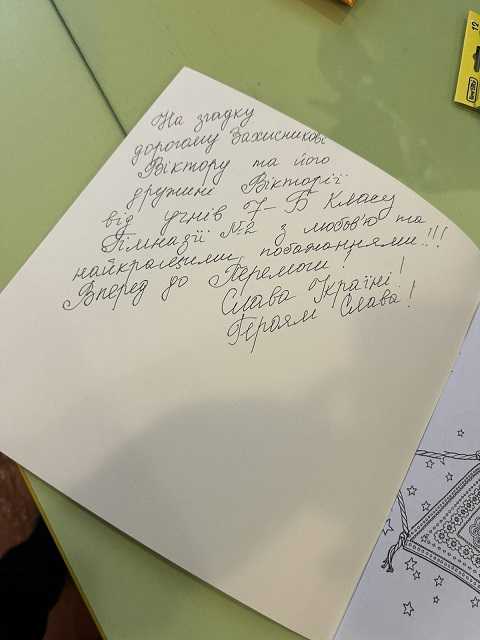 На згадку
дорогому Захисникові
Віктору та його
дружині Вікторії
від учнів 7-Б класу
Гімназії №2 з любов'ю та
найкращими побажаннями!!!
Вперед до Перемоги!
Слава Україні!
Героям Слава!
12